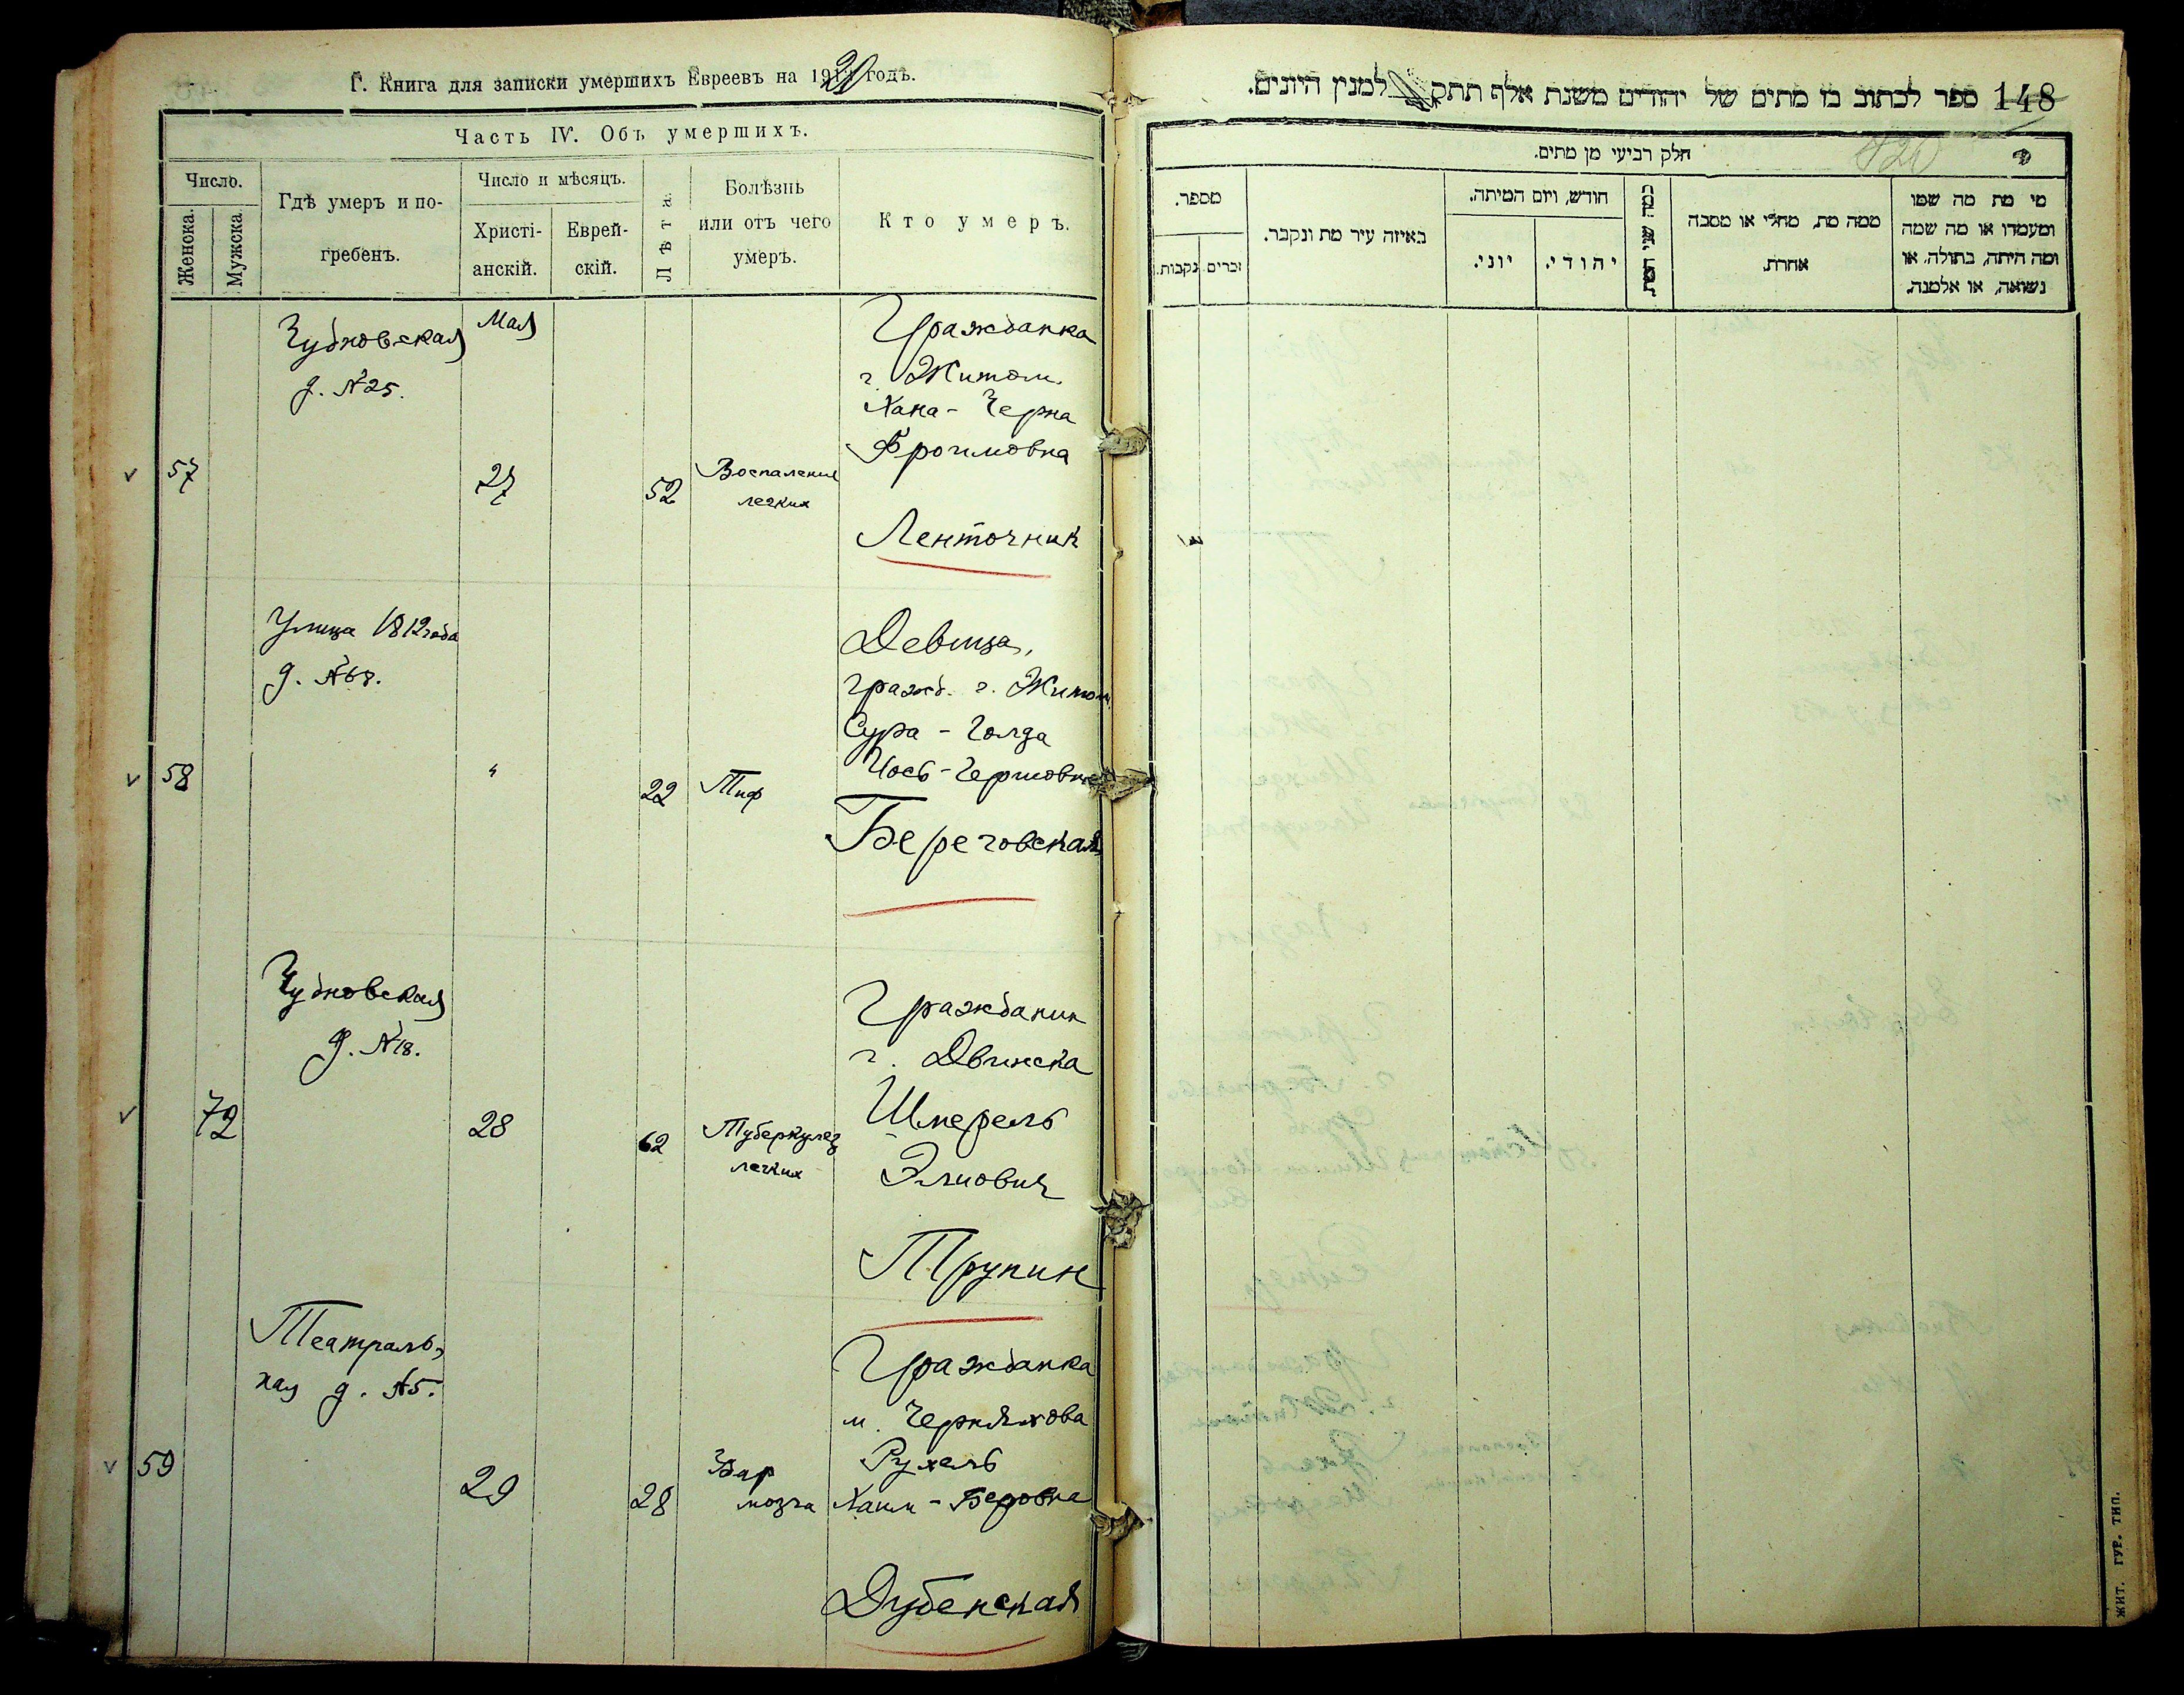 Г. Книга для записки умершихъ Евреевъ на 1920 годъ.
Часть IV. Объ умершихъ.
Число.
Женска.
Мужска.
Гдѣ умеръ и по-
гребенъ.
Число и мѣсяцъ.
Христі-
анскій.
Еврей-
скій.
Лѣта.
Болѣзнь
или отъ чего
умеръ.
Кто умеръ.
Чудновская
д. №25.
Мая
57
27
52
Воспаление
легких
Гражданка
г. Житом.
Хана - Черна
Фроимовна
Ленточник
Улица 1812 года
д. №68.
58
"
22
Тиф
Девица,
гражд. г. Житом.
Сура - Голда
Иось - Гершовна
Береговская
Чудновская
д. №18.
72
28
62
Туберкулез
легких
Гражданин
г. Двинска
Шмерель
Элиович
Трупин
Театраль-
ная д. №5.
59
29
28
мозга
Гражданка
м. Черняхова
Рухель
Хаим - Беровна
Дубенская
148
ספר לכתוב בו מתים של יהודים משנת אלף תתק למנין היונים.
920
חלק רביעי מן מתים.
מי מת מה שמו
ומעמדו או מה שמה
ומה היתה, בתולה, או
נשואה, או אלמנה.
ממה מת, מחלי או מסבה
אחרת.
כמה שני המת
חודש, ויום המיתה.
יהודי.
יוני.
באיזה עיר מת ונקבר.
מספר.
זכרים.
נקבות.
ЖИТ. ГУБ. ТИП.